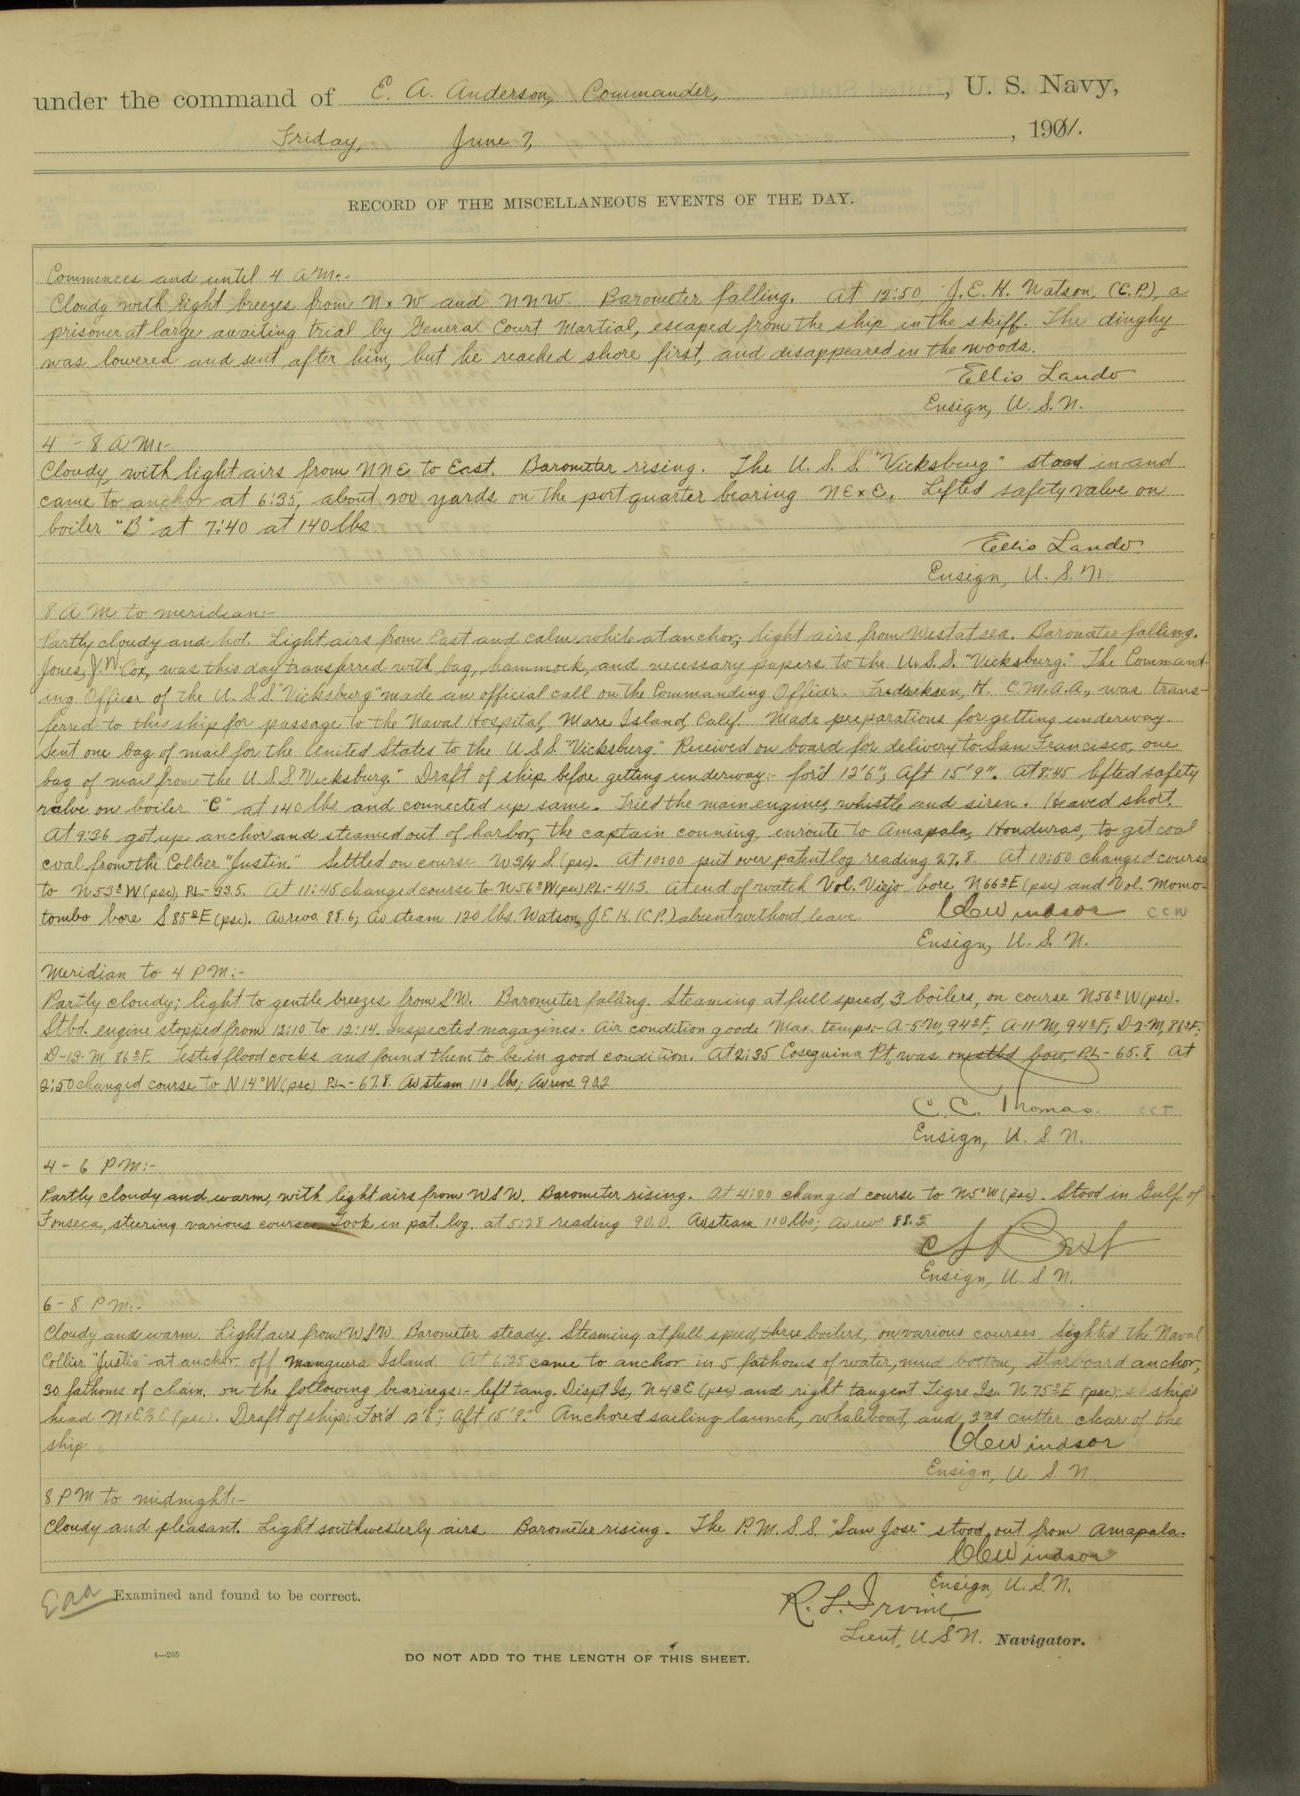 under the command of E. A. Anderson, Commander, , U. S. Navy,
Friday, June 7, , 1901.
RECORD OF THE MISCELLANEOUS EVENTS OF THE DAY.
Commences and until 4 A.M:-
Cloudy with light breezes from N x W and NNW. Barometer falling. At 12:50 J.E.H. Watson, (C.P.), a
prisoner at large awaiting trial by General Court Martial, escaped from the ship in the skiff. The dinghy
was lowered and sent after him, but he reached shore first, and disappeared in the woods.
Ellis Lando
Ensign, U.S.N.
4 - 8 A M:-
Cloudy, with light airs from NNE to East. Barometer rising. The U.S.S. "Vicksburg" stood in and
came to anchor at 6:35, about 200 yards on the port quarter bearing NE x E. Lifted safety valve on
boiler "B" at 7:40 at 140 lbs.
Ellis Lando
Ensign, U.S.N.
8 A M to meridian:-
Partly cloudy and hot. Light airs from East and calm while at anchor; light airs from West at sea. Barometer falling.
Jones, J.W. Cox, was this day transferred with bag, hammock, and necessary papers to the U.S.S. "Vicksburg." The Command-
ing Officer of the U.S.S. "Vicksburg" made an official call on the Commanding Officer. Fredericksen, H. C.M.A.A., was trans-
ferred to this ship for passage to the Naval Hospital, Mare Island, Calif. Made preparations for getting underway.
Sent one bag of mail for the United States to the U.S.S. "Vicksburg." Received on board for delivery to San Francisco, one
bag of mail from the U.S.S. "Vicksburg." Draft of ship before getting underway:- for'd 12'6"; Aft 15'9". At 8:45 lifted safety
valve on boiler "C" at 140 lbs and connected up same. Tried the main engines, whistle and siren. Heaved short.
At 9:36 got up anchor and steamed out of harbor, the captain conning, enroute to Amapala, Honduras, to get coal
coal from the Collier "Justin." Settled on course W 3/4 S (psc). At 10:00 put over patent log reading 27.8. At 10:50 changed course
to N53°W (psc), P.L.- 33.5. At 11:45 changed course to N56°W (psc) P.L.- 41.3. At end of watch Vol. Viejo bore N66°E (psc) and Vol. Momo-
tombo bore S85°E (psc). Av revs. 88.6; Av steam 120 lbs. Watson, J.E.H. (C.P.) absent without leave.
CC Windsor CCW
Ensign, U.S.N.
Meridian to 4 P M:-
Partly cloudy; light to gentle breezes from SW. Barometer falling. Steaming at full speed, 3 boilers, on course N56°W (psc).
Stbd. engine stopped from 12:10 to 12:14. Inspected magazines. Air condition good. Max. temps:- A-5-M, 94°F; A-11-M, 94°F; D-2-M, 86°F;
D-12-M 86°F. Tested flood cocks and found them to be in good condition. At 2:35 Coseguina Pt. was on stbd bow, P.L.- 65.8. At
2:50 changed course to N14°W (psc) P.L.- 67.8. Av steam 110 lbs; Av revs 90.2
C. C. Thomas. CCT
Ensign, U.S.N.
4 - 6 P M:-
Partly cloudy and warm, with light airs from WSW. Barometer rising. At 4:00 changed course to N5°W (psc). Stood in Gulf of
Fonseca, steering various courses. Took in pat. log. at 5:28 reading 90.0. Av steam 110 lbs; Av revs 88.5
Ensign, U.S.N.
6 - 8 P M:-
Cloudy and warm. Light airs from WSW. Barometer steady. Steaming at full speed, three boilers, on various courses. Sighted the Naval
Collier "Justin" at anchor off Manguera Island. At 6:25 came to anchor in 5 fathoms of water, mud bottom, starboard anchor,
30 fathoms of chain, on the following bearings:- left tang. Dispt Is. N43E (psc) and right tangent Tigre Is. N75°E (psc): ship's
head (psc). Draft of ship: For'd 12'6"; Aft 15'9". Anchored sailing launch, whaleboat, and 2nd cutter clear of the
ship.
CC Windsor
Ensign, U.S.N.
8 P M to midnight:-
Cloudy and pleasant. Light southwesterly airs. Barometer rising. The P.M.S.S. "San Jose" stood out from Amapala.
CC Windsor
Ensign, U.S.N.
EAA Examined and found to be correct.
R. L. Irvine
Lieut, U.S.N. Navigator.
4—265
DO NOT ADD TO THE LENGTH OF THIS SHEET.